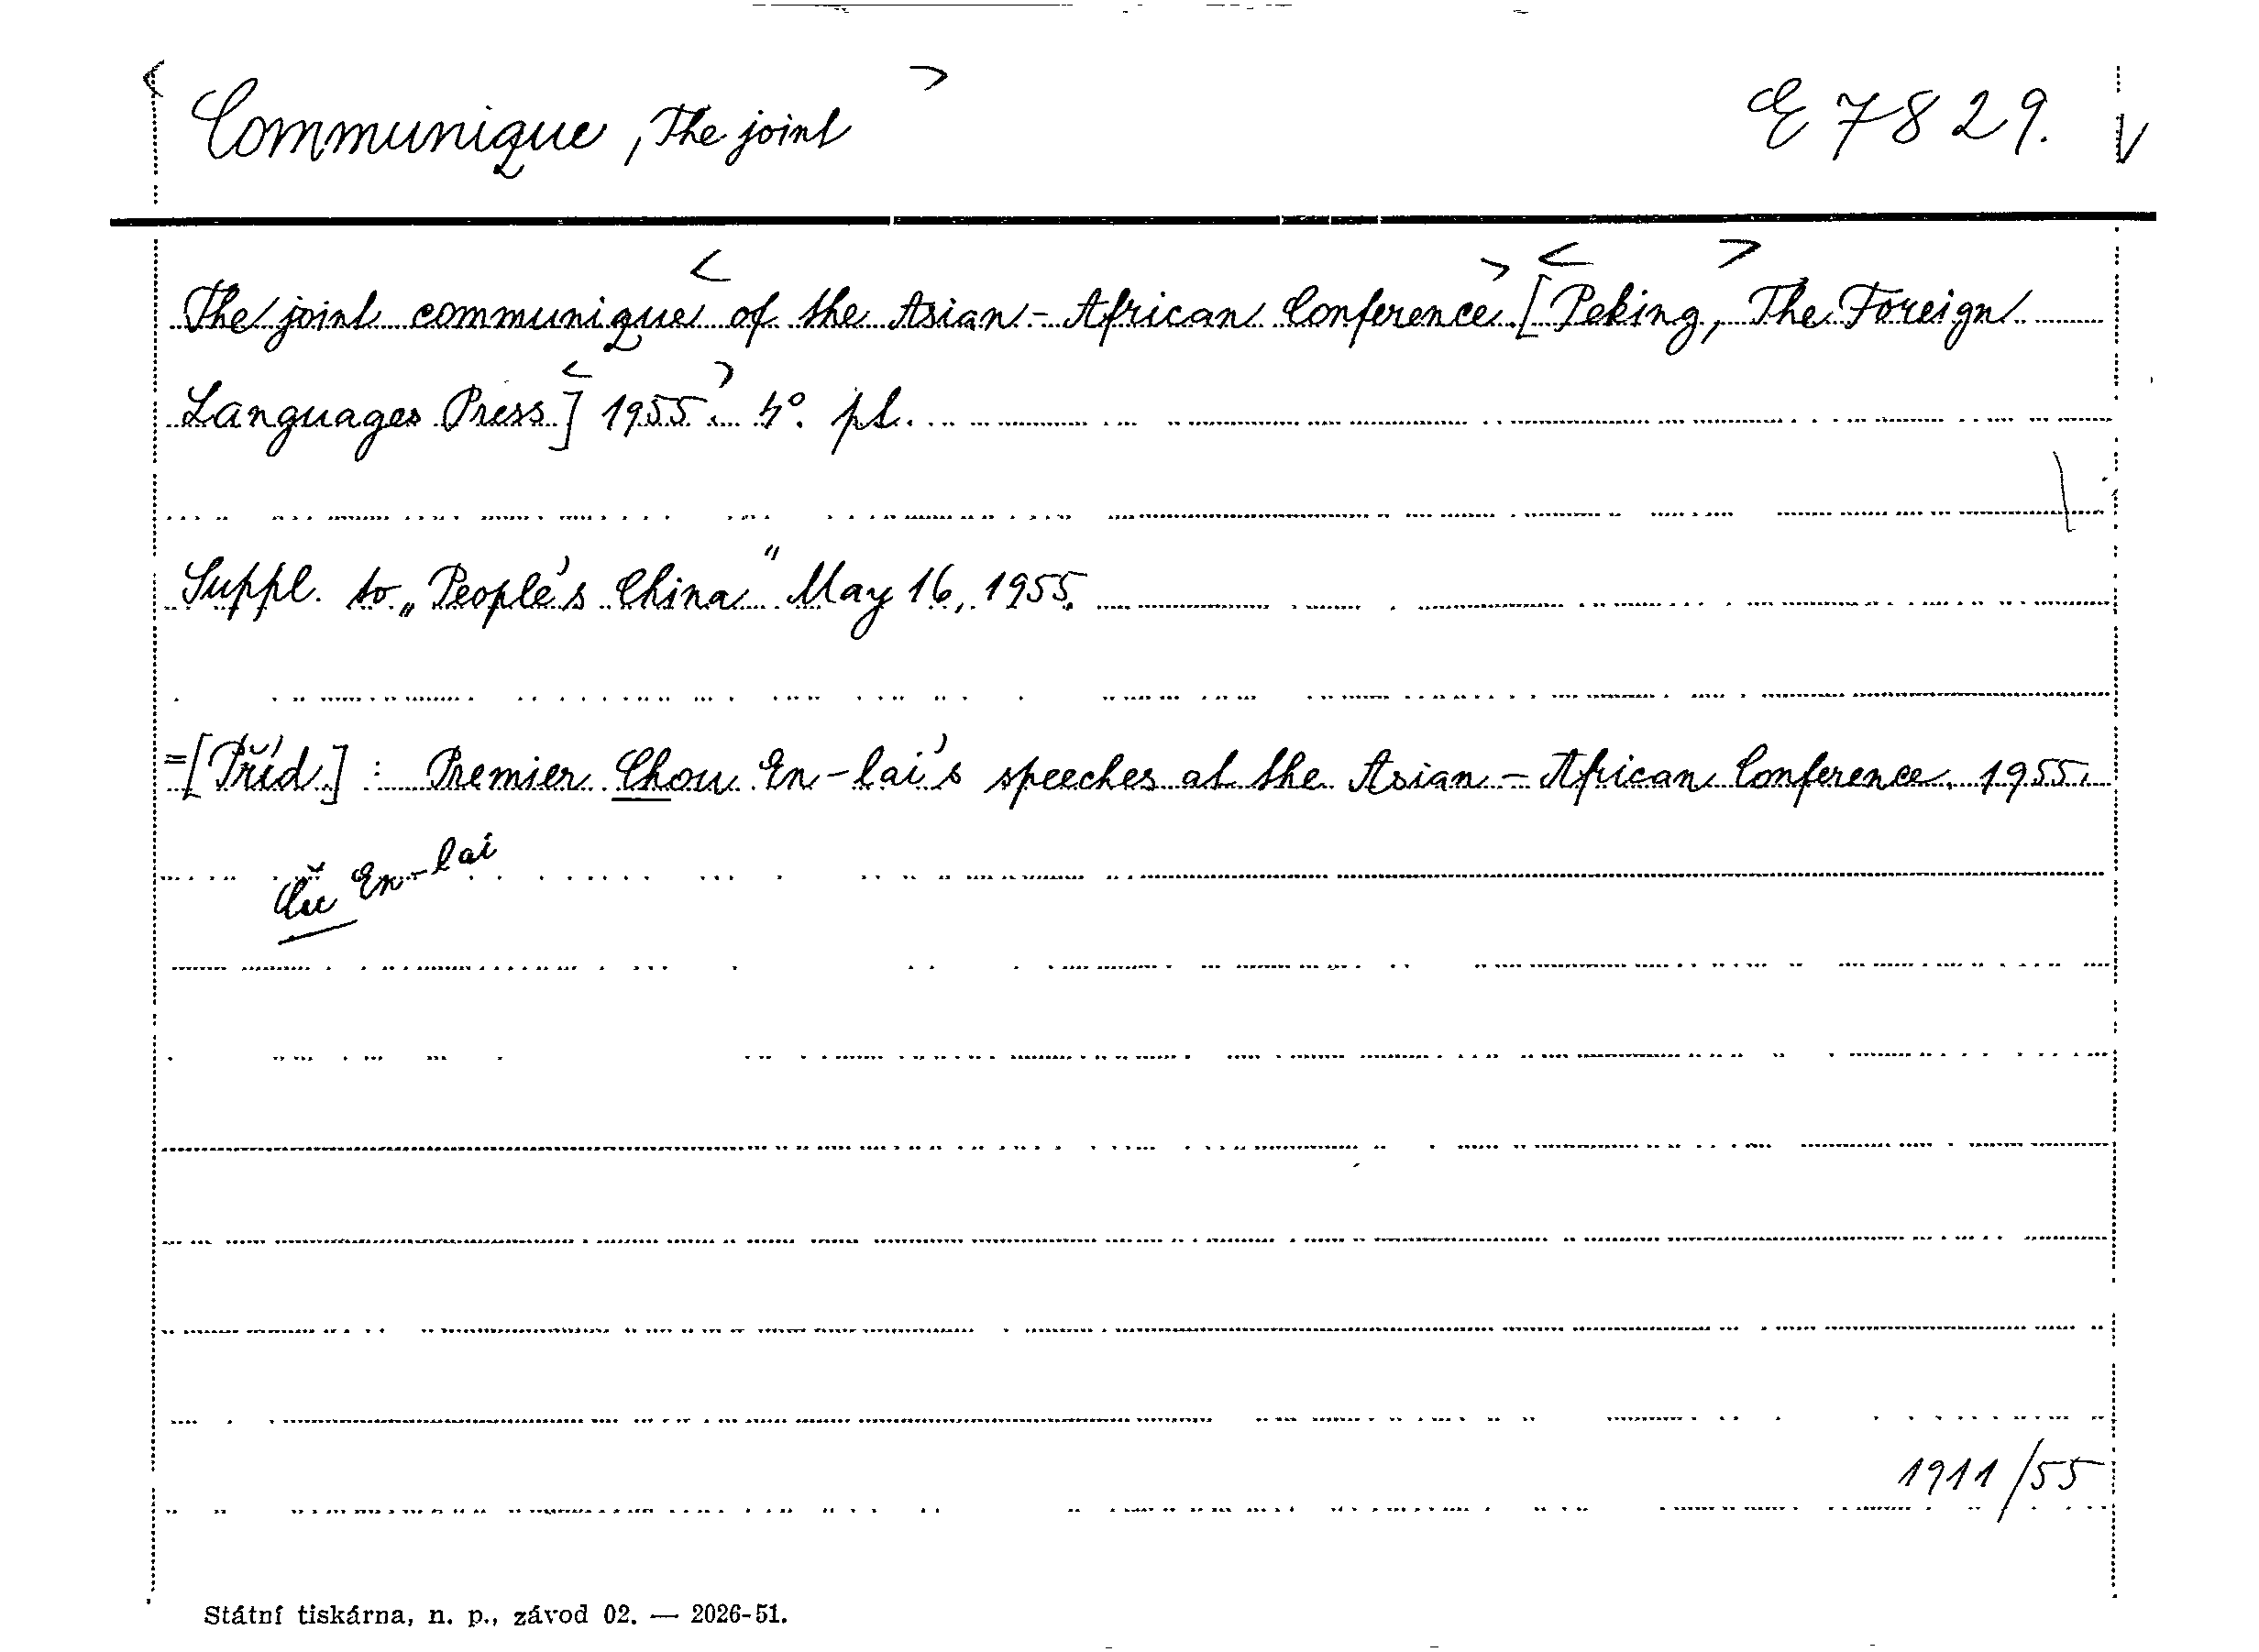 < Communique, The joint > E 7829. V
The joint communique < of the Asian - African Conference > [ < Peking, > The Foreign
Languages Press ] < 1955 >. 4°. pl.
Suppl. to „People's China" May 16, 1955.
=[Příd.] : Premier Chou En-lai's speeches at the Asian - African Conference. 1955.
Ču En-lai
1911/55
Státní tiskárna, n. p., závod 02. — 2026-51.